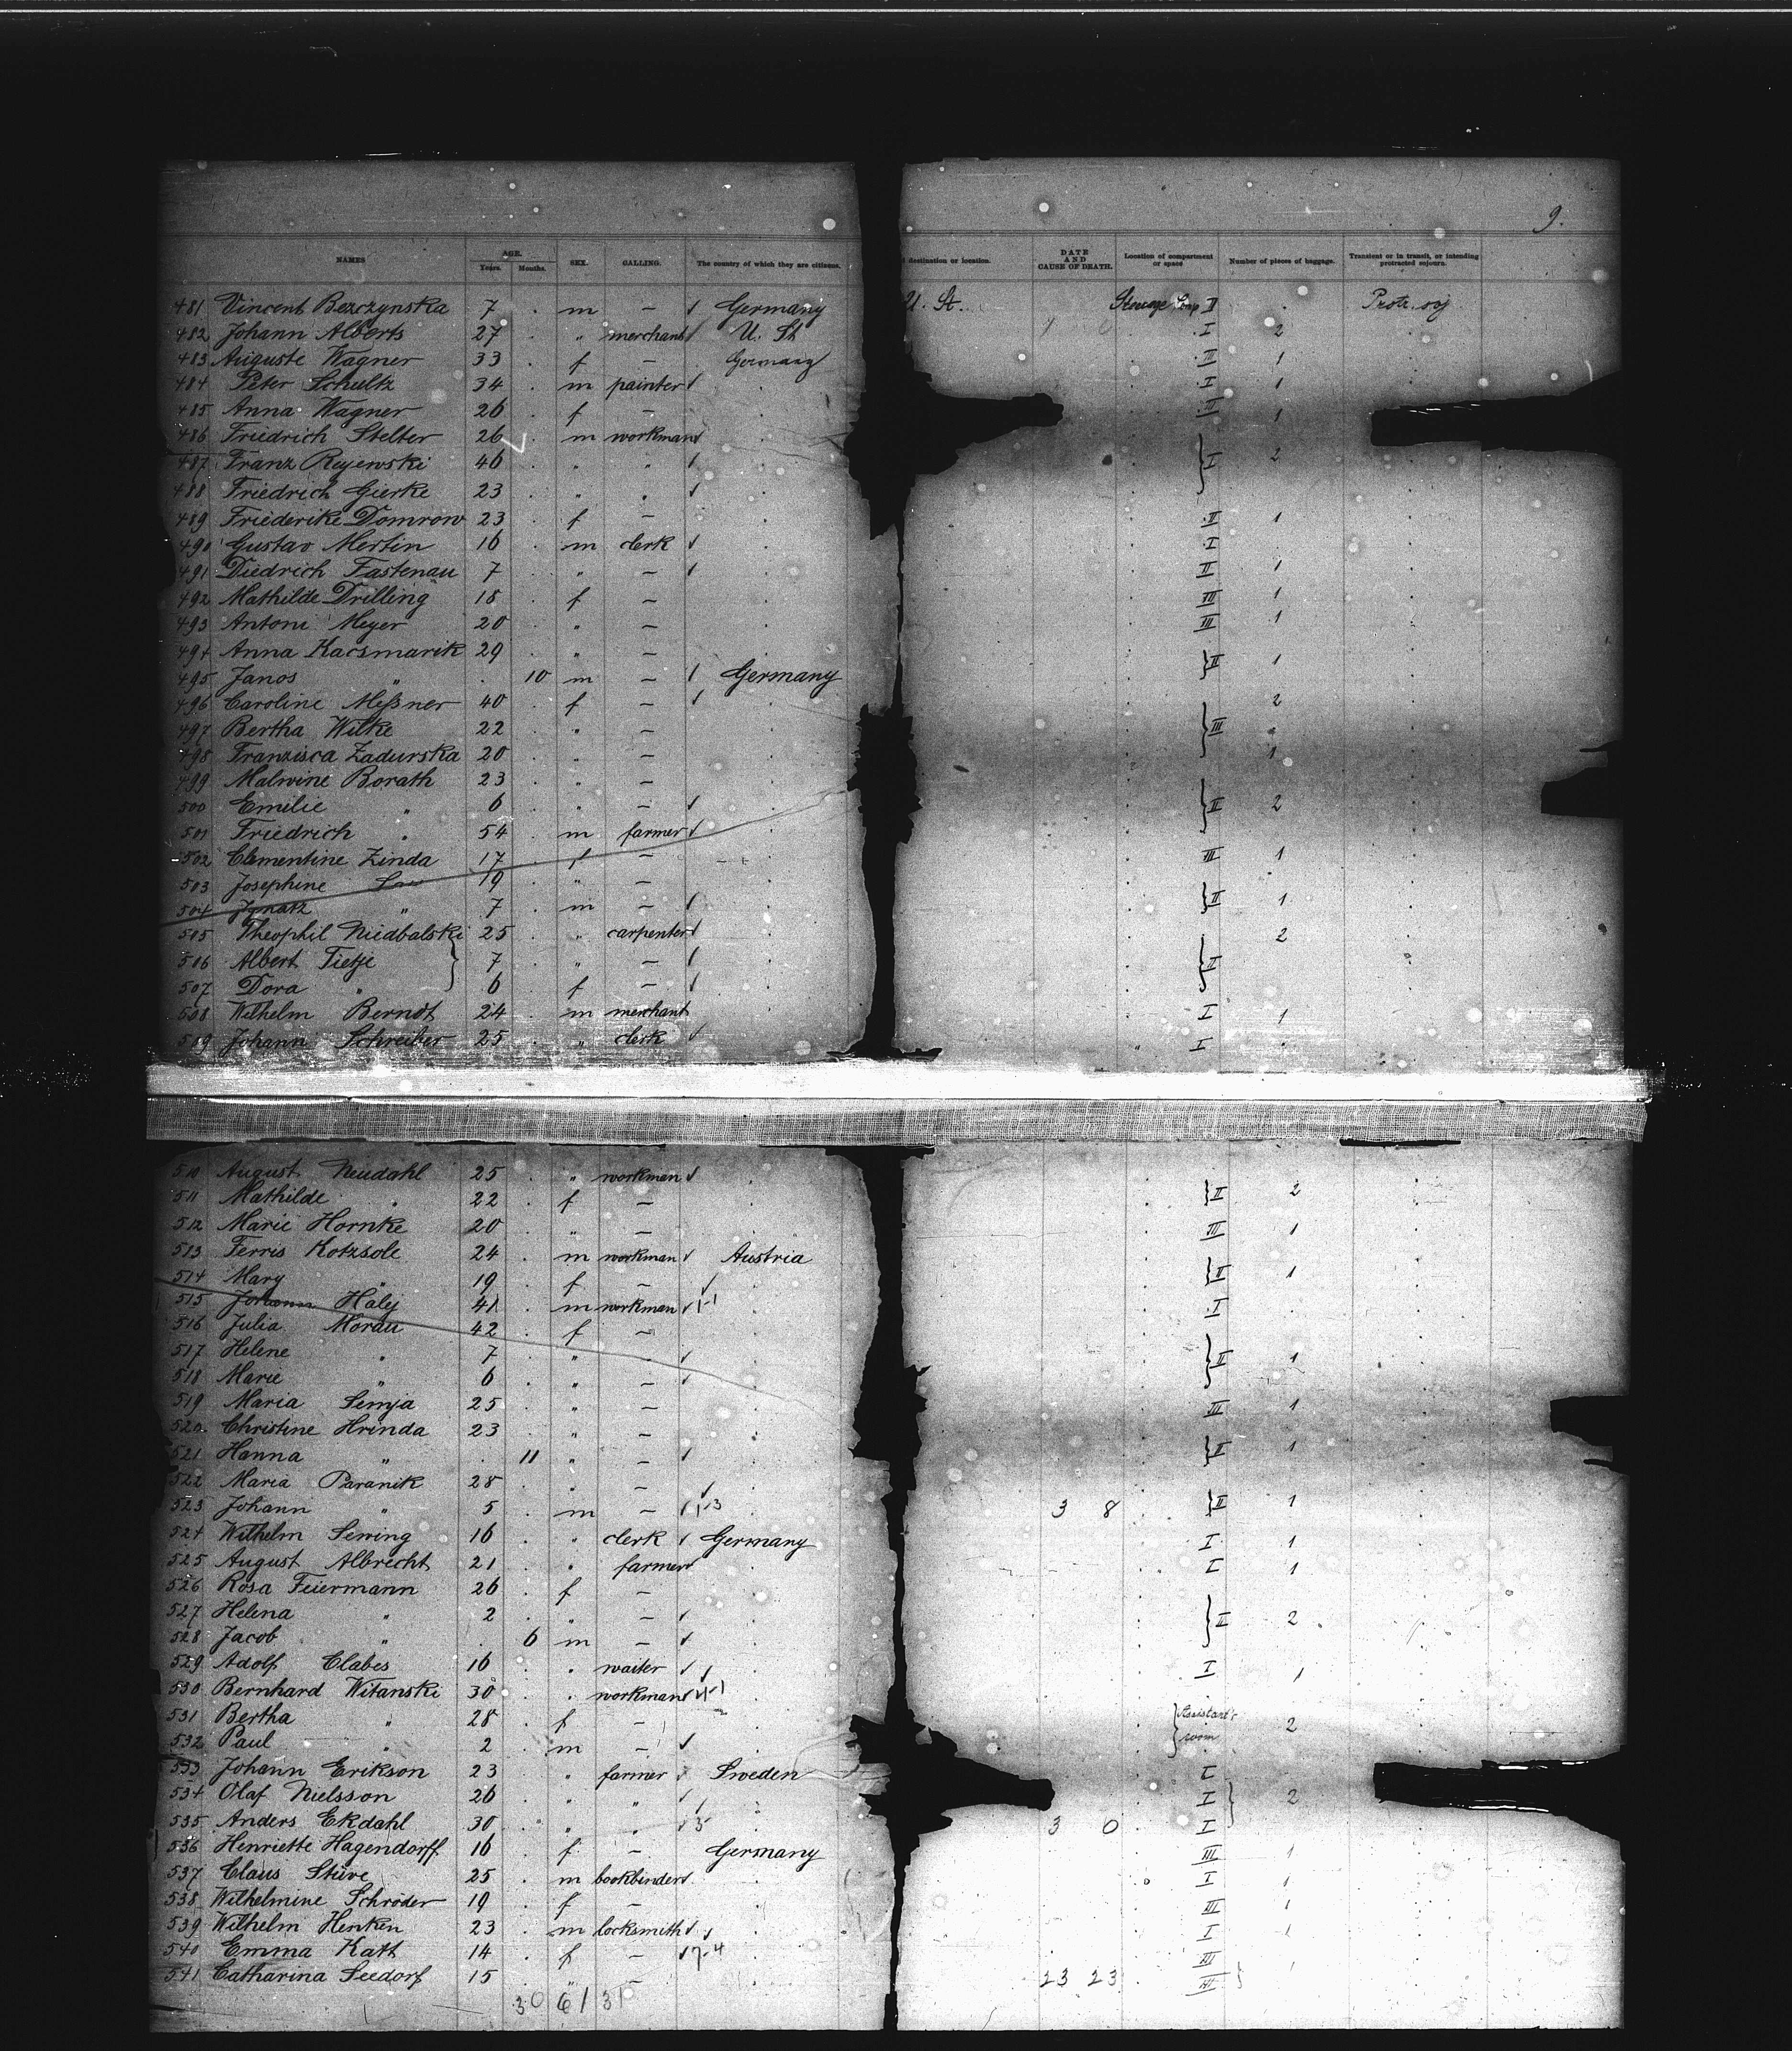 9.
NAMES AGE. SEX. CALLING. The country of which they are citizens. destination or location. DATE AND CAUSE OF DEATH. Location of compartment or space Number of pieces of baggage. Transient or in transit, or intending protracted sojourn.
Years. Months.
481 Vincent Bezczynska 7 . m — Germany U. St. Steerage Comp II . Protr. soj
482 Johann Alberts 27 . " merchant U. St I 2
483 Auguste Wagner 33 . f — Germany III 1
484 Peter Schultz 34 . m painter . I 1
485 Anna Wagner 26 . f — . 1
486 Friedrich Stelter 26 . m workman .
487 Franz Rejewski 46 . " " . I 2
488 Friedrich Gierke 23 . " " .
489 Friederike Domrow 23 . f — . II 1
490 Gustav Mertin 16 . m clerk . I .
491 Diedrich Fastenau 7 . " — . II 1
492 Mathilde Drilling 18 . f — . III 1
493 Antoni Meyer 20 . " — . III 1
494 Anna Kacsmarik 29 . " —
495 Janos " . 10 m — Germany II 1
496 Caroline Meßner 40 . f — . 2
497 Bertha Wilke 22 . " — . III
498 Franzisca Zadurska 20 . " — . 1
499 Malwine Borath 23 . " — .
500 Emilie " 6 . " — . II 2
501 Friedrich " 54 . m farmer .
502 Clementine Zinda 17 . f — . III 1
503 Josephine 19 . " — .
504 Ignatz " 7 . m — . II 1
505 Theophil Niedbalski 25 . " carpenter . 2
506 Albert Tietje 7 . " — . II
507 Dora " 6 . f — .
508 Wilhelm Berndt 24 . m merchant I 1
509 Johann Schreiber 25 . " clerk I .
510 August Neudahl 25 . " workman .
511 Mathilde " 22 . f — . II 2
512 Marie Hornke 20 . " — . III 1
513 Ferris Kotzsole 24 . m workman Austria
514 Mary " 19 . f — . II 1
515 Johann Haly 41 . m workman 1-1 . I .
516 Julia Morau 42 . f — .
517 Helene " 7 . " . II 1
518 Marie " 6 . " — .
519 Maria Semja 25 . " — . III 1
520 Christine Hrinda 23 . " — .
521 Hanna " . 11 " — . II 1
522 Maria Paranik 28 . " — .
523 Johann " 5 . m — 1-3 . 3 8 II 1
524 Wilhelm Sewing 16 . " clerk Germany I 1
525 August Albrecht 21 . " farmer . I 1
526 Rosa Feiermann 26 . f — .
527 Helena " 2 . " — . II 2
528 Jacob " . 6 m — .
529 Adolf Clabes 16 . " waiter . I 1
530 Bernhard Witanski 30 . " workman .
531 Bertha " 28 . f — . Assistant's room 2
532 Paul " 2 . m — .
533 Johann Erikson 23 . " farmer Sweden I
534 Olaf Nielsson 26 . " " . I 2
535 Anders Ekdahl 30 . " " 5 . 3 0 I
536 Henriette Hagendorff 16 . f — Germany III 1
537 Claus Stüve 25 . m bookbinder . I 1
538 Wilhelmine Schröder 19 . f — . III 1
539 Wilhelm Henken 23 . m locksmith . I 1
540 Emma Katt 14 . f — 7-4 . III
541 Catharina Seedorf 15 . " — . 23 23 III 1
30 61 31